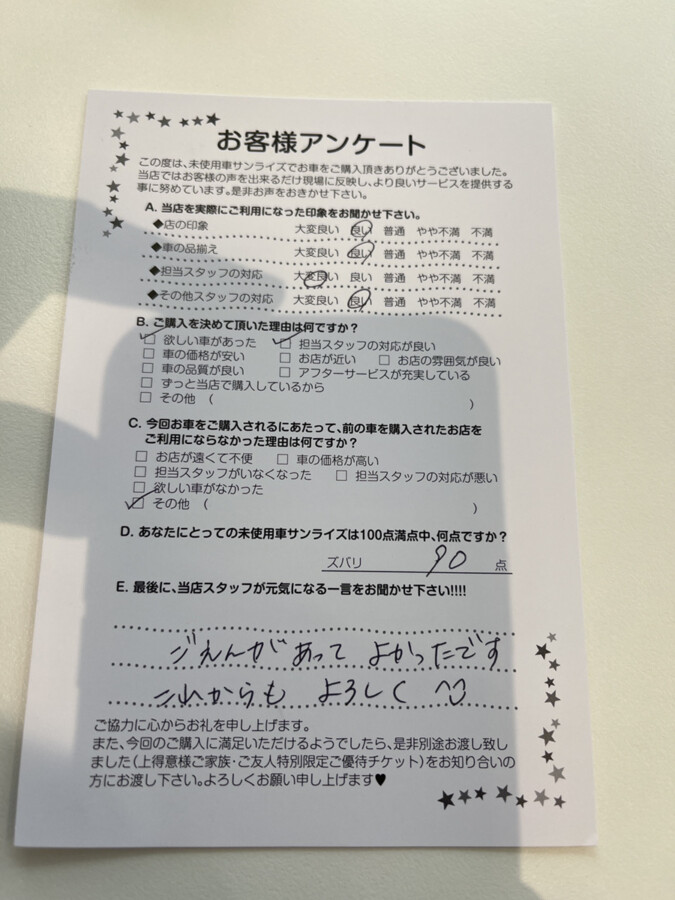 お客様アンケート
この度は、未使用車サンライズでお車をご購入頂きありがとうございました。
当店ではお客様の声を出来るだけ現場に反映し、より良いサービスを提供する
事に努めています。是非お声をおきかせ下さい。
A. 当店を実際にご利用になった印象をお聞かせ下さい。
◆店の印象 大変良い 良い 普通 やや不満 不満
◆車の品揃え 大変良い 良い 普通 やや不満 不満
◆担当スタッフの対応 大変良い 良い 普通 やや不満 不満
◆その他スタッフの対応 大変良い 良い 普通 やや不満 不満
B. ご購入を決めて頂いた理由は何ですか?
☑ 欲しい車があった ☑ 担当スタッフの対応が良い
□ 車の価格が安い □ お店が近い □ お店の雰囲気が良い
□ 車の品質が良い □ アフターサービスが充実している
□ ずっと当店で購入しているから
□ その他 ( )
C. 今回お車をご購入されるにあたって、前の車を購入されたお店を
ご利用にならなかった理由は何ですか?
□ お店が遠くて不便 □ 車の価格が高い
□ 担当スタッフがいなくなった □ 担当スタッフの対応が悪い
□ 欲しい車がなかった
☑ その他 ( )
D. あなたにとっての未使用車サンライズは100点満点中、何点ですか?
ズバリ 90 点
E. 最後に、当店スタッフが元気になる一言をお聞かせ下さい!!!!
ごえんがあって よかったです
これからも よろしく ^^
ご協力に心からお礼を申し上げます。
また、今回のご購入に満足いただけるようでしたら、是非別途お渡し致し
ました(上得意様ご家族・ご友人特別限定ご優待チケット)をお知り合いの
方にお渡し下さい。よろしくお願い申し上げます♥